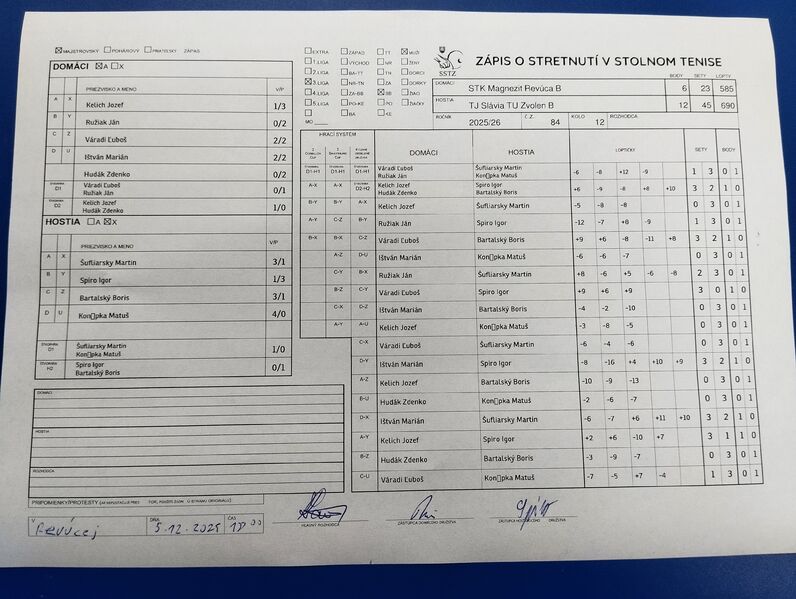 MAJSTROVSKÝ POHÁROVÝ PRIATEĽSKÝ ZÁPAS
DOMÁCI A X
PRIEZVISKO A MENO V/P
A X Kelich Jozef 1/3
B Y Ružiak Ján 0/2
C Z Váradi Ľuboš 2/2
D U Ištván Marián 2/2
Hudák Zdenko 0/2
D1 Váradi Ľuboš 0/1
Ružiak Ján
D2 Kelich Jozef 1/0
Hudák Zdenko
HOSTIA A X
PRIEZVISKO A MENO V/P
A X Šufliarsky Martin 3/1
B Y Spiro Igor 1/3
C Z Bartalský Boris 3/1
D U Kon▯pka Matuš 4/0
Šufliarsky Martin 1/0
Kon▯pka Matuš
H2 Spiro Igor 0/1
Bartalský Boris
DOMÁCI
HOSTIA
ROZHODCA
PRIPOMIENKY/PROTESTY
V Revúcej DŇA 5.12.2025 ČAS
EXTRA ZÁPAD TT MUŽI
1.LIGA VÝCHOD NR ŽENY
2.LIGA BA-TT TN DORCI
3.LIGA NR-TN ZA DORKY
4.LIGA ZA-BB BB ŽIACI
5.LIGA PO-KE PO ŽIAČKY
BA KE
MO
SSTZ
ZÁPIS O STRETNUTÍ V STOLNOM TENISE
BODY SETY LOPTY
DOMÁCI STK Magnezit Revúca B 6 23 585
HOSTIA TJ Slávia TU Zvolen B 12 45 690
ROČNÍK 2025/26 Č.Z. 84 KOLO 12 ROZHODCA
HRACÍ SYSTÉM
DOMÁCI HOSTIA LOPTIČKY SETY BODY
D1-H1 D1-H1 D1-H1 Váradi Ľuboš Šufliarsky Martin -6 -8 +12 -9 1 3 0 1
Ružiak Ján Kon▯pka Matuš
A-X A-X D2-H2 Kelich Jozef Spiro Igor +6 -9 -8 +8 +10 3 2 1 0
Hudák Zdenko Bartalský Boris
B-Y B-Y A-X Kelich Jozef Šufliarsky Martin -5 -8 -8 0 3 0 1
A-Y C-Z B-Y Ružiak Ján Spiro Igor -12 -7 +8 -9 1 3 0 1
B-X B-X C-Z Váradi Ľuboš Bartalský Boris +9 +6 -8 -11 +8 3 2 1 0
A-Z D-U Ištván Marián Kon▯pka Matuš -6 -6 -7 0 3 0 1
C-Y B-X Ružiak Ján Šufliarsky Martin +8 -6 +5 -6 -8 2 3 0 1
B-Z C-Y Váradi Ľuboš Spiro Igor +9 +6 +9 3 0 1 0
C-X D-Z Ištván Marián Bartalský Boris -4 -2 -10 0 3 0 1
A-Y A-U Kelich Jozef Kon▯pka Matuš -3 -8 -5 0 3 0 1
C-X Váradi Ľuboš Šufliarsky Martin -6 -4 -6 0 3 0 1
D-Y Ištván Marián Spiro Igor -8 -16 +4 +10 +9 3 2 1 0
A-Z Kelich Jozef Bartalský Boris -10 -9 -13 0 3 0 1
B-U Hudák Zdenko Kon▯pka Matuš -2 -6 -7 0 3 0 1
D-X Ištván Marián Šufliarsky Martin -6 -7 +6 +11 +10 3 2 1 0
A-Y Kelich Jozef Spiro Igor +2 +6 -10 +7 3 1 1 0
B-Z Hudák Zdenko Bartalský Boris -3 -9 -7 0 3 0 1
C-U Váradi Ľuboš Kon▯pka Matuš -7 -5 +7 -4 1 3 0 1
HLAVNÝ ROZHODCA ZÁSTUPCA DOMÁCEHO DRUŽSTVA ZÁSTUPCA HOSŤUJÚCEHO DRUŽSTVA